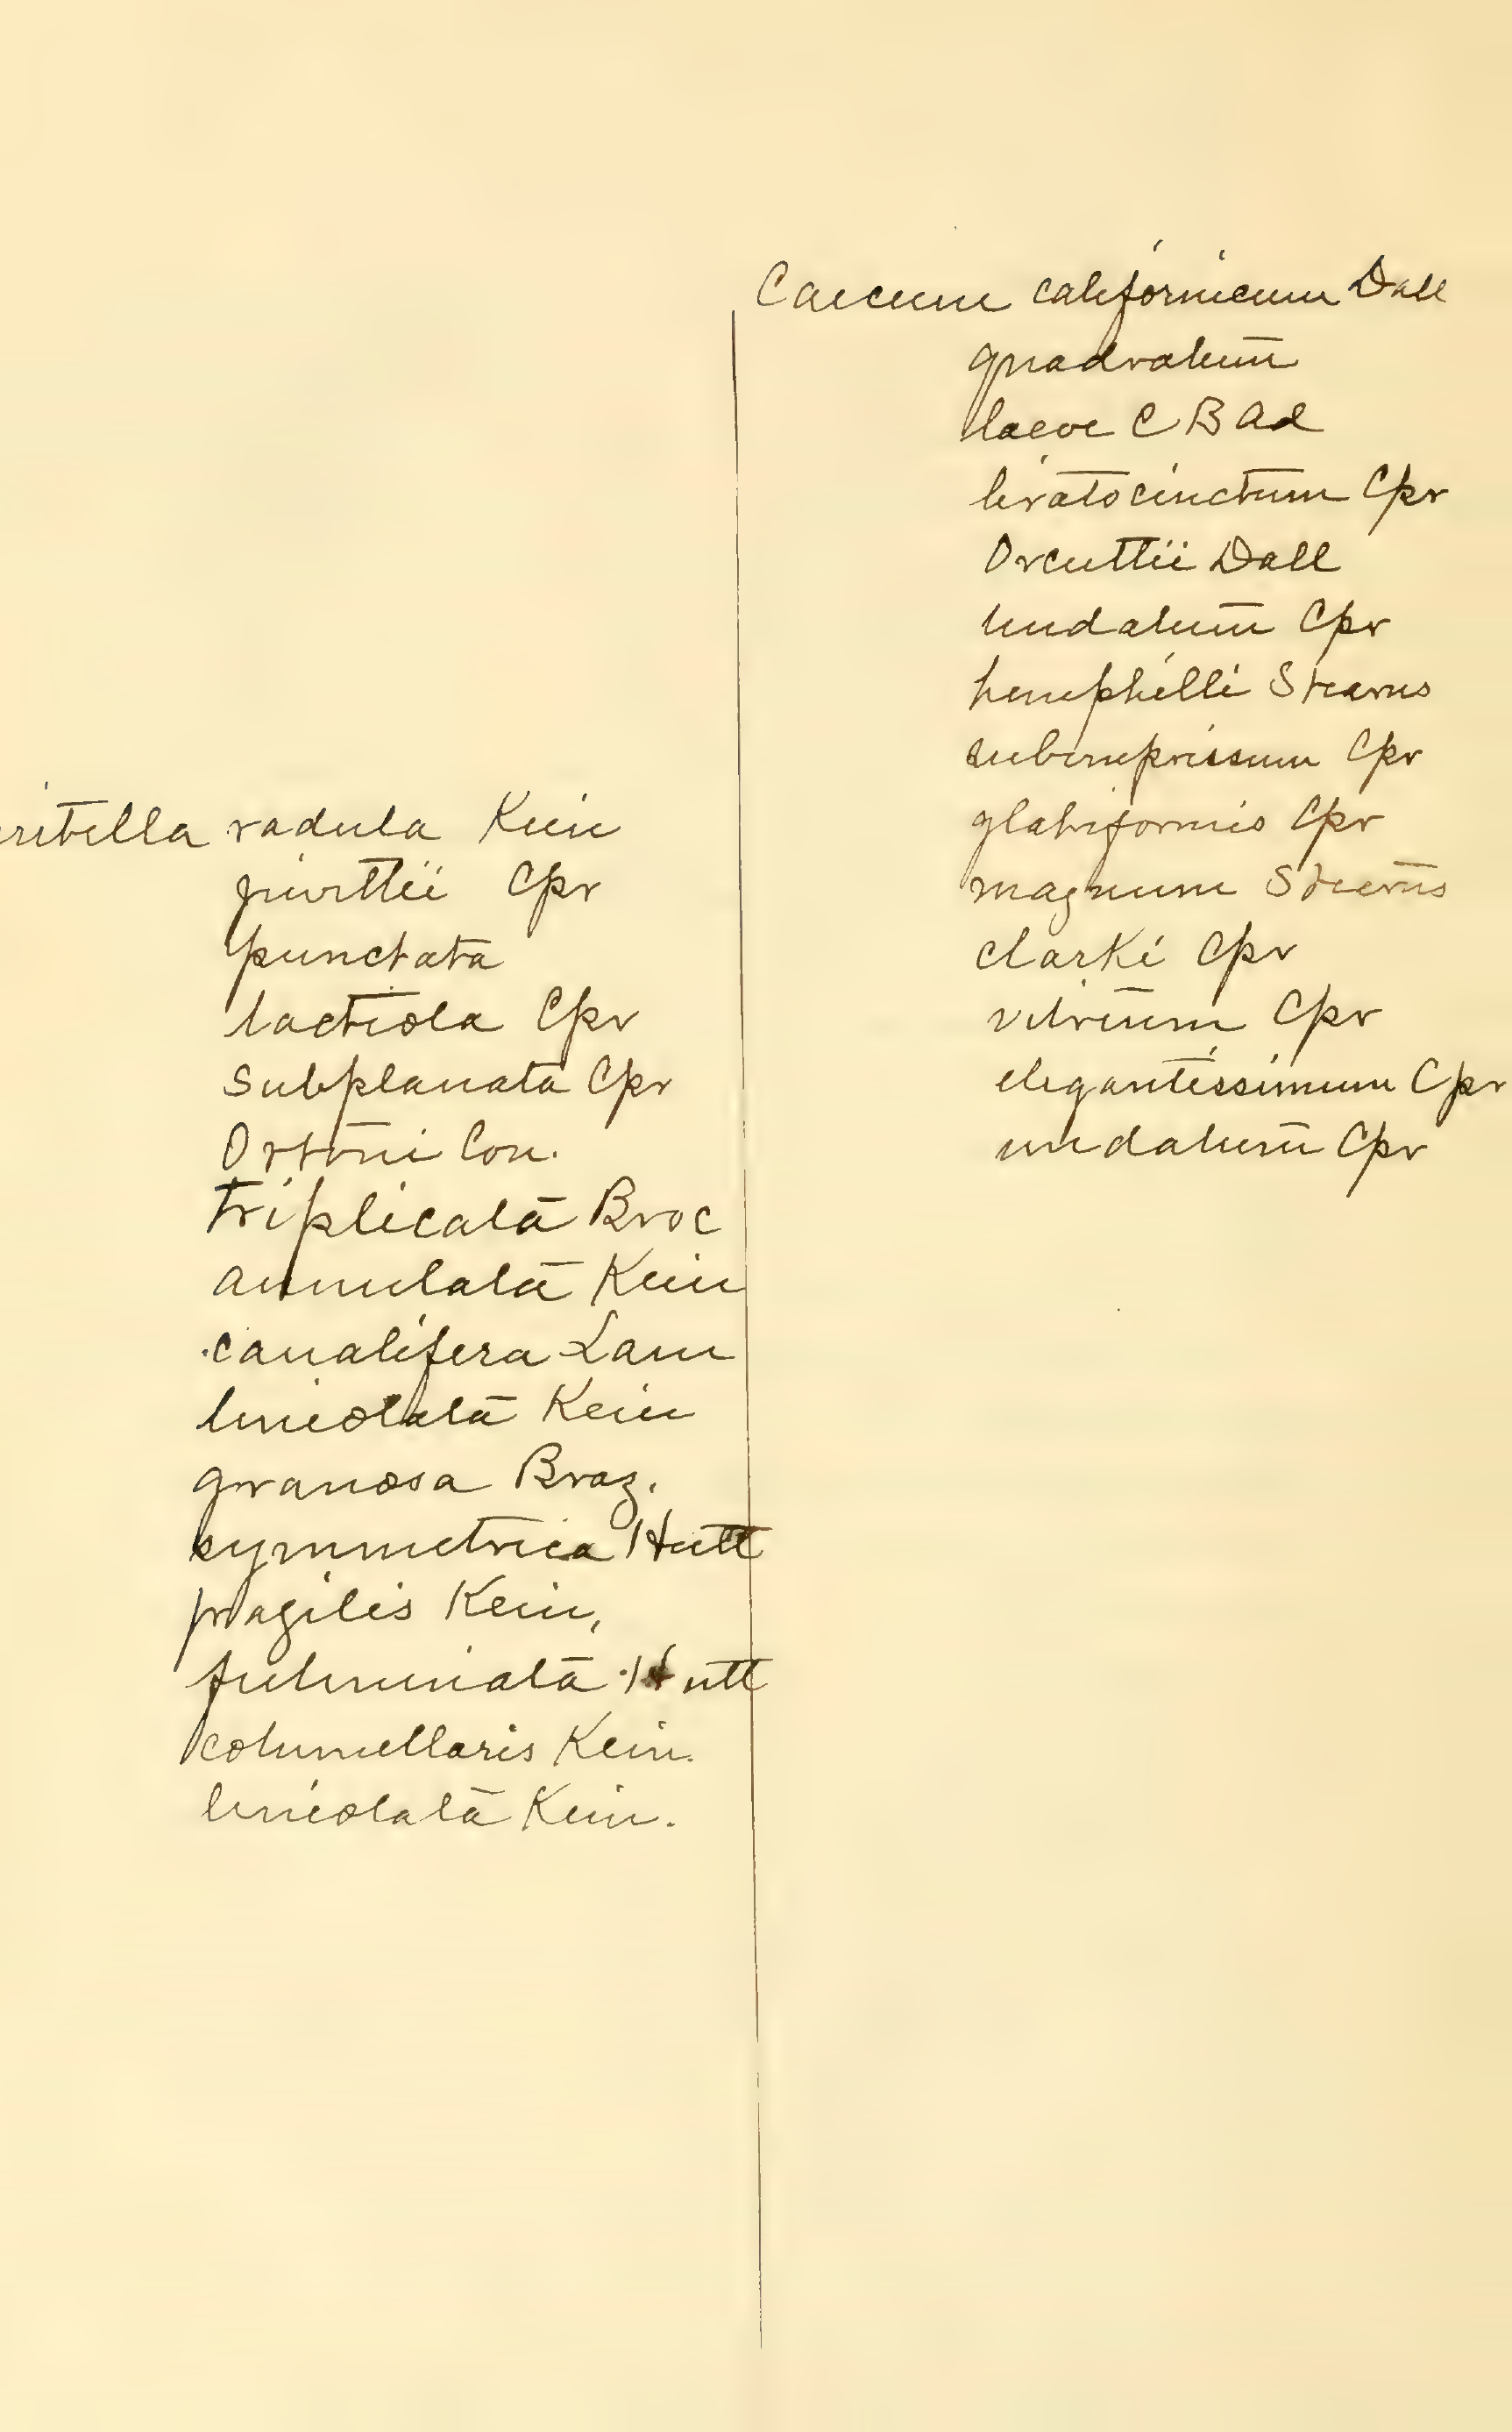 ritella radula Kien
jewettii Cpr
punctata
lacteola Cpr
subplanata Cpr
Ortoni Con.
triplicata Broc
annulata Kien
canalifera Lam
lineolata Kein
granosa Braz.
symmetrica Hutt
fragilis Kein,
fulminata Hutt
columellaris Kein.
lineolata Kein.
Caecum californicum Dall
quadratum
laeve C B Ad
liratocinctum Cpr
Orcuttii Dall
undatum Cpr
hemphilli Stearns
subimpressum Cpr
glabriformis Cpr
magnum Stearns
clarki Cpr
vitreum Cpr
elegantissimum Cpr
undatum Cpr